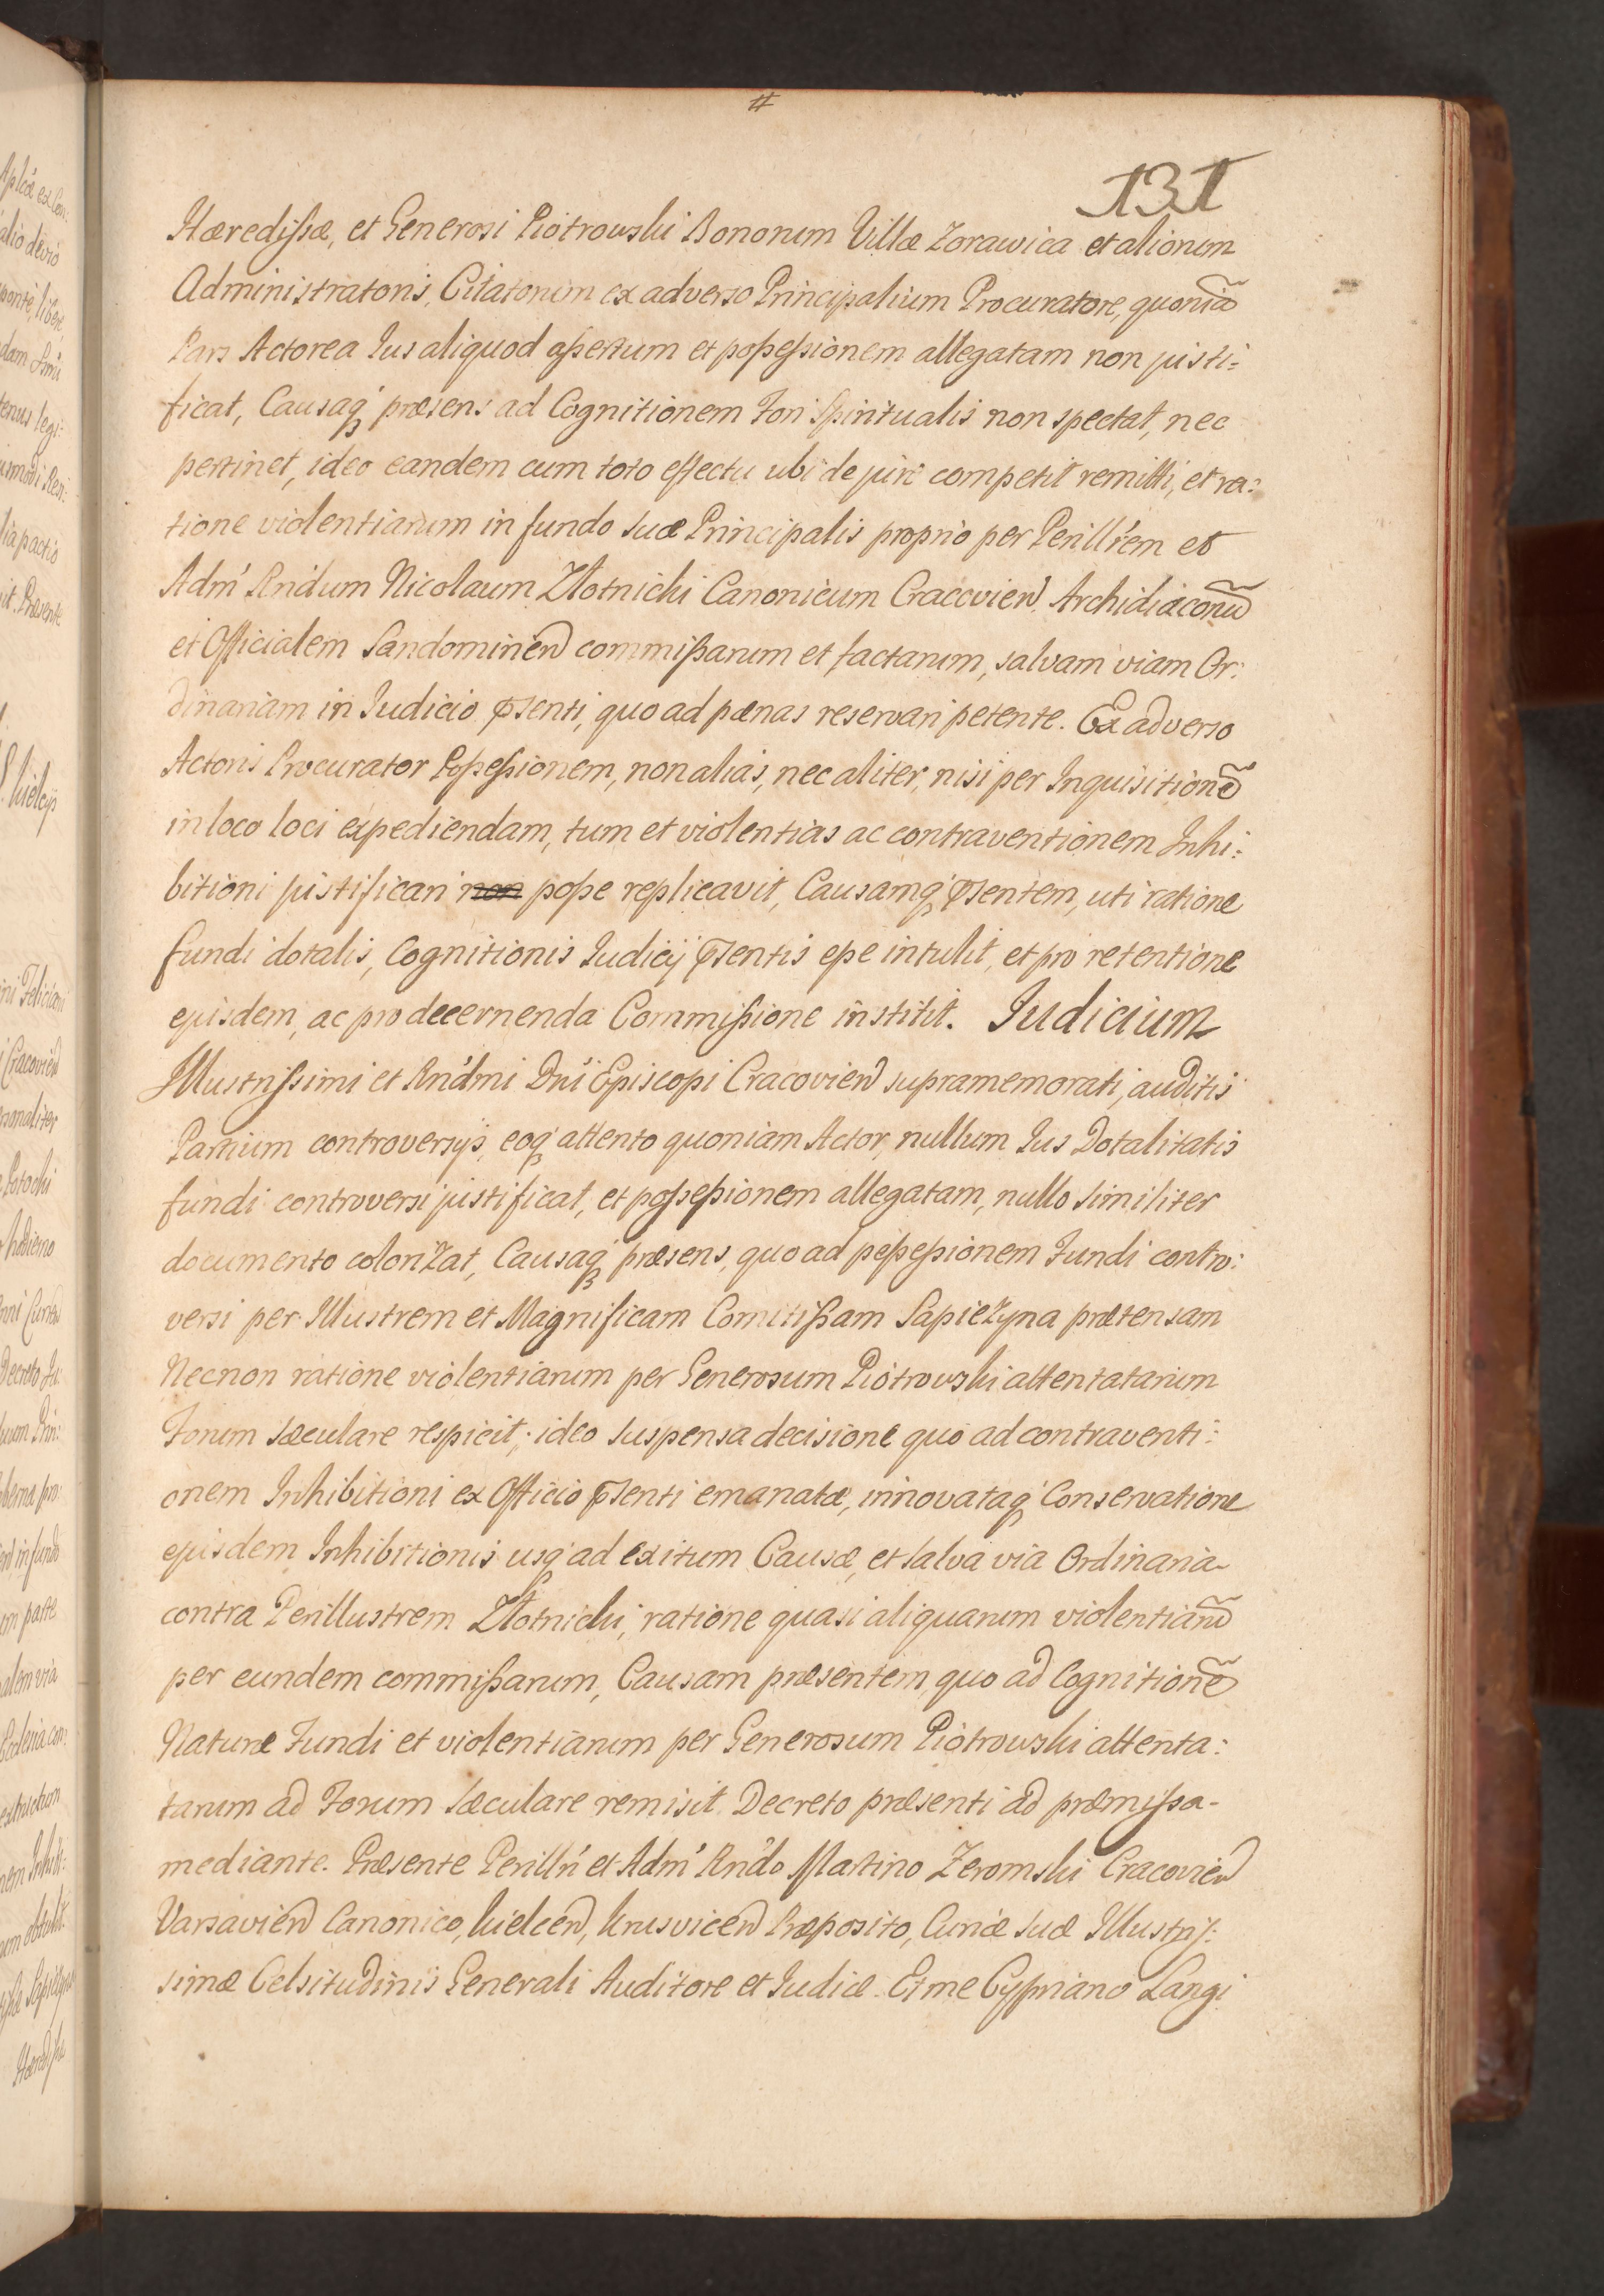 #
131
Hæredißæ, et Generosi Piotrowski Bonorum Villæ Zorawica et aliorum
Administratoris, Citatorum ex adverso Principalium Procuratore, quoniã
Pars Actorea Ius aliquod aßertum et poßeßionem allegatam non justi:
ficat, Causaq́ præsens ad Cognitionem Fori Spiritualis non spectat, nec
pertinet, ideo eandem cum toto effectu ubi de jure competit remitti, et ra:
tione violentiarum in fundo suæ Principalis proprio per Perill'rem et
Adm' Rndum Nicolaum Złotnicki Canonicum Cracovien̄ Archidiaconũ
et Officialem Sandomirien̄ commißarum et factarum, salvam viam Or:
dinariam in Iudicio p̄senti, quo ad pœnas reservari petente. Ex adverso
Actoris Procurator Poßeßionem, non alias, nec aliter, nisi per Inquisitionẽ
in loco loci expediendam, tum et violentias ac contraventionem Inhi:
bitioni justificari non poße replicavit, Causamq́ p̄sentem, uti ratione
fundi dotalis, Cognitionis Iudicij p̄sentis eße intulit, et pro retentione
ejusdem, ac pro decernenda Commißione institit. Iudicium
Illustrißimi et Rndmi Dn̄i Episcopi Cracovien̄ supramemorati, auditis
Partium controversijs, eoq́ attento quoniam Actor, nullum Ius Dotalitatis
fundi controversi justificat, et poßeßionem allegatam, nullo similiter
documento colorizat, Causaq́ præsens, quo ad peßeßionem Fundi contro:
versi per Illustrem et Magnificam Comitißam Sapiezyna prætensam
Necnon ratione violentiarum per Generosum Piotrowski attentatarum
Forum sæculare respicit; ideo suspensa decisione quo ad contraventi:
onem Inhibitioni ex Officio p̄senti emanatæ, innovataq́ Conservatione
ejusdem Inhibitionis usq́ ad exitum Causæ, et salva via Ordinaria
contra Perillustrem Złotnicki, ratione quasi aliquarum violentiarũ
per eundem commißarum, Causam præsentem quo ad Cognitionẽ
Naturæ Fundi et violentiarum per Generosum Piotrowski attenta:
tarum ad Forum sæculare remisit Decreto præsenti ad præmißa
mediante. Præsente Perill'ri et Adm' Rndo Martino Zeromski Cracovien̄
Varsavien̄ Canonico, Kielcen̄, Krusvicen̄ Præposito, Curiæ suæ Illustriß:
simæ Celsitudinis Generali Auditore et Iudice. Et me Cypriano Langi